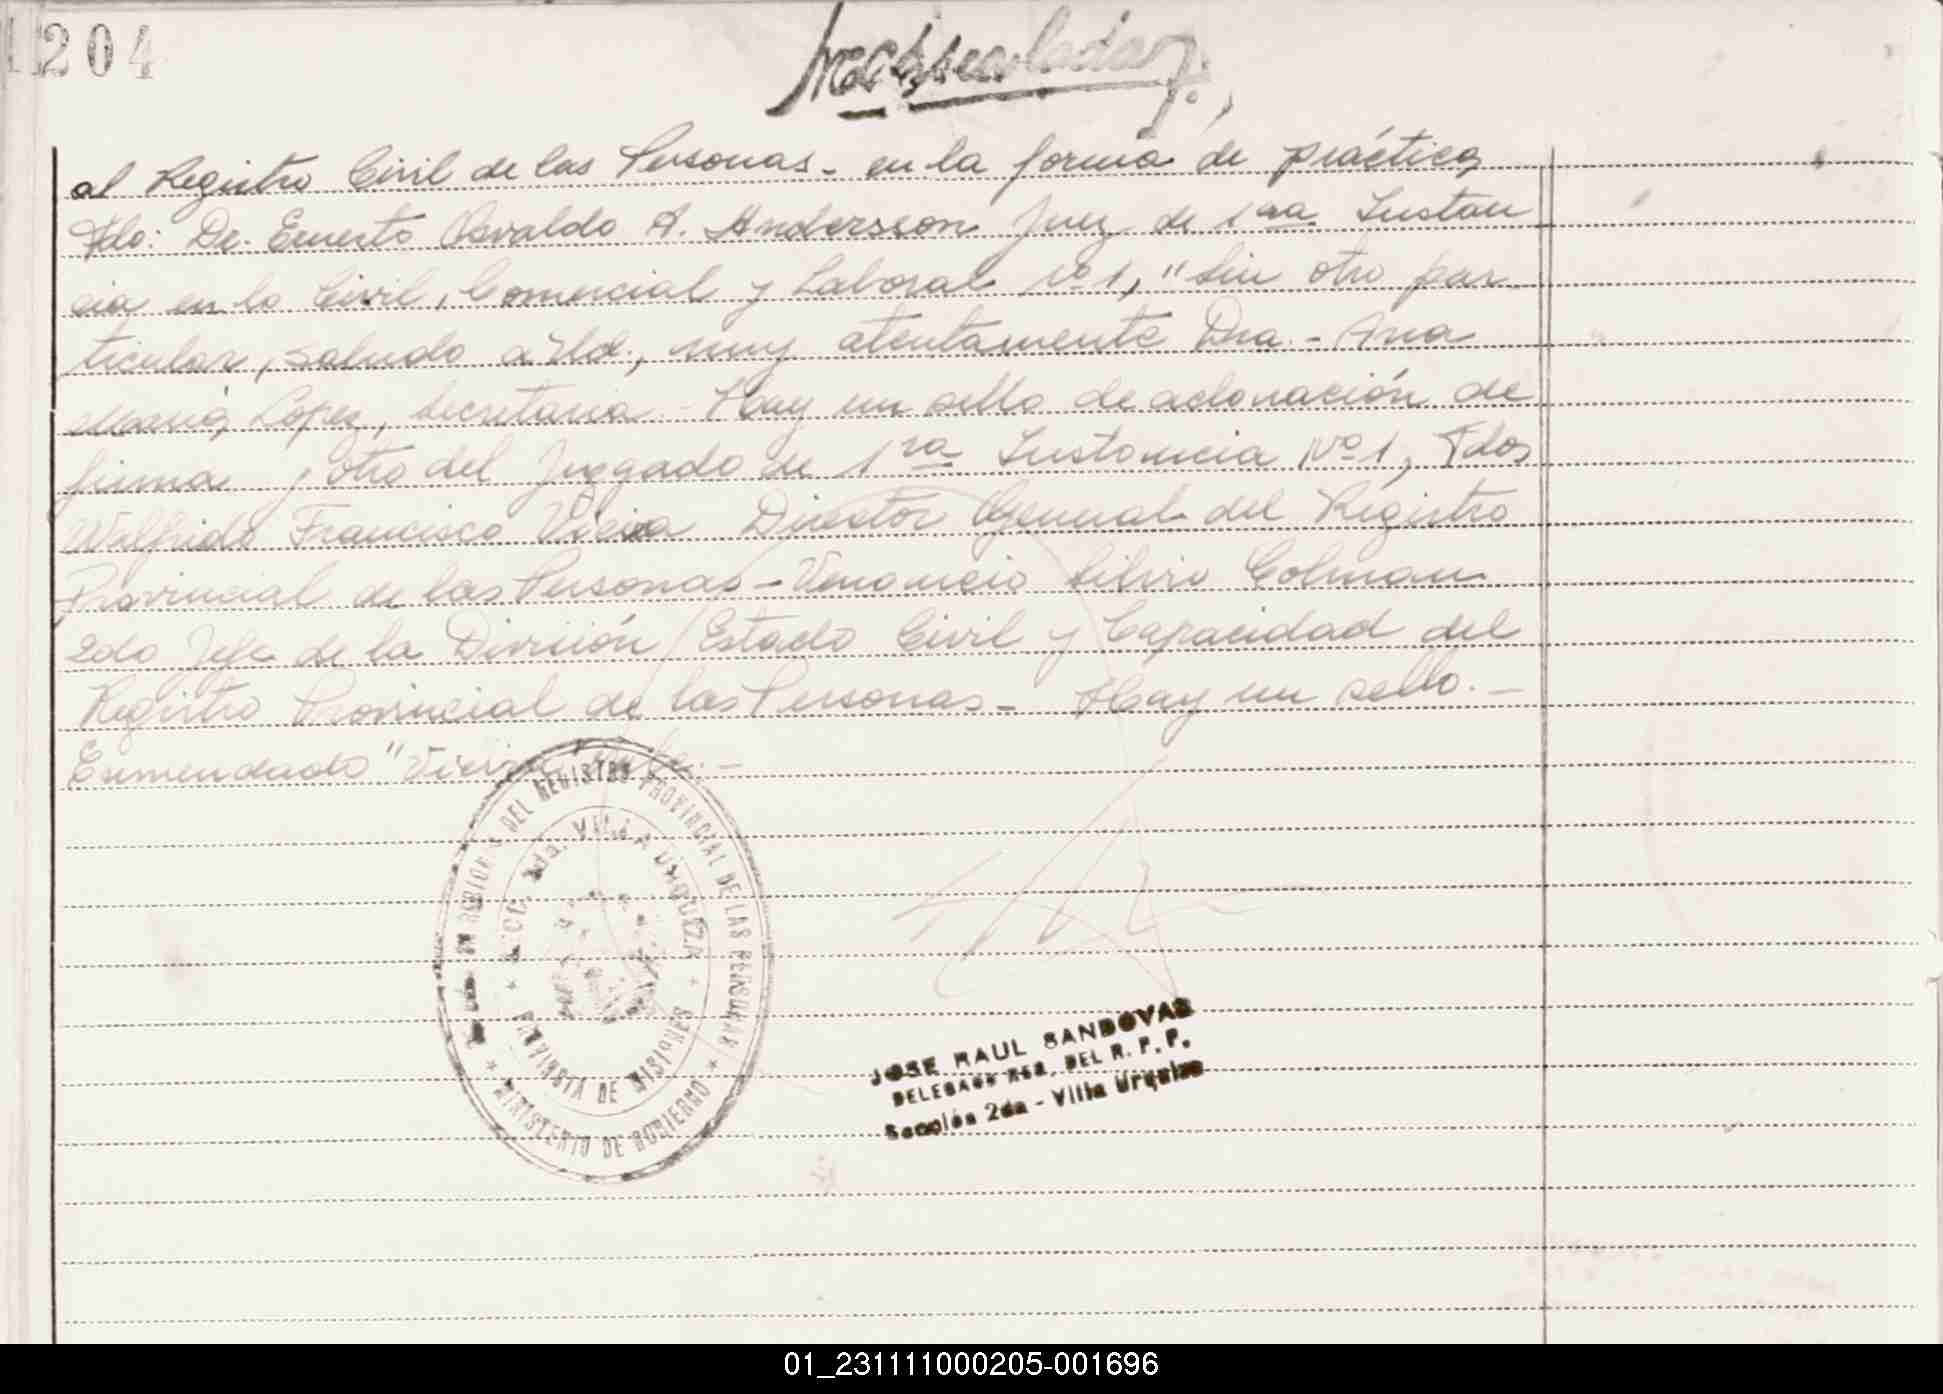 204
al Registro Civil de las Personas - en la forma de práctica,
Fdo: Dr. Ernesto Osvaldo A. Andersson Juez de 1ra Instan
cia en lo Civil, Comercial y Laboral Nº 1, "Sin otro par
ticular, saludo a Ud., muy atentamente Dra. - Ana
María, Lopez, Secretaria - Hay un sello de aclaración de
firma y otro del Juzgado de 1ra Instancia Nº 1, Fdos
Wilfrido Francisco Vieira Director General del Registro
Provincial de las Personas - Venancio Silvio Colman
2do Jefe de la División Estado Civil y Capacidad del
Registro Provincial de las Personas - Hay un sello. -
Enmendado "Vieira" Vale. -
DEL REGISTRO PROVINCIAL DE LAS PERSONAS
SECC. 2da. VILLA URQUIZA
PROVINCIA DE MISIONES
MINISTERIO DE GOBIERNO
JOSE RAUL SANDOVAL
DELEGADO REG. DEL R. P. P.
Sección 2da - Villa Urquiza
01_231111000205-001696